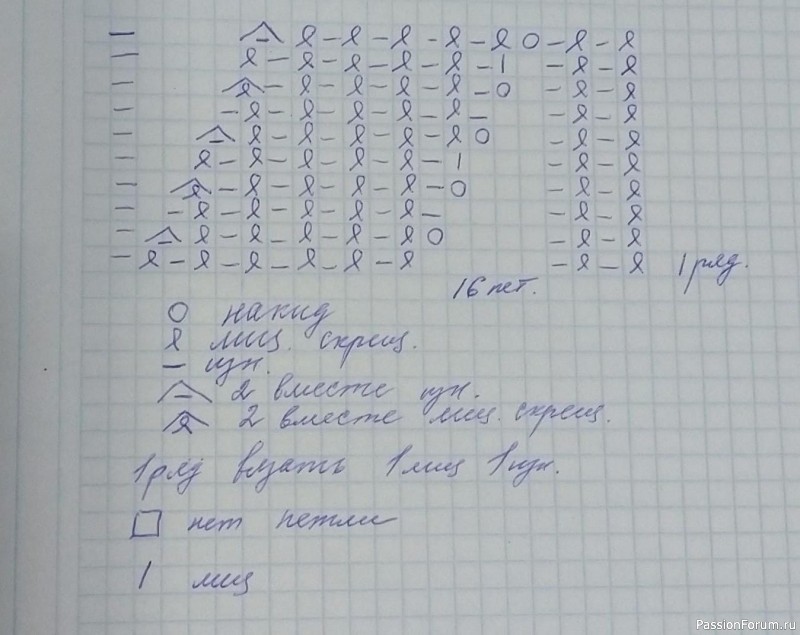 1 ряд.
16 пет.
О накид
лиц. скрещ.
– изн.
2 вместе изн.
2 вместе лиц. скрещ.
1 ряд вязать 1 лиц 1 изн.
□ нет петли
1 лиц
PassionForum.ru